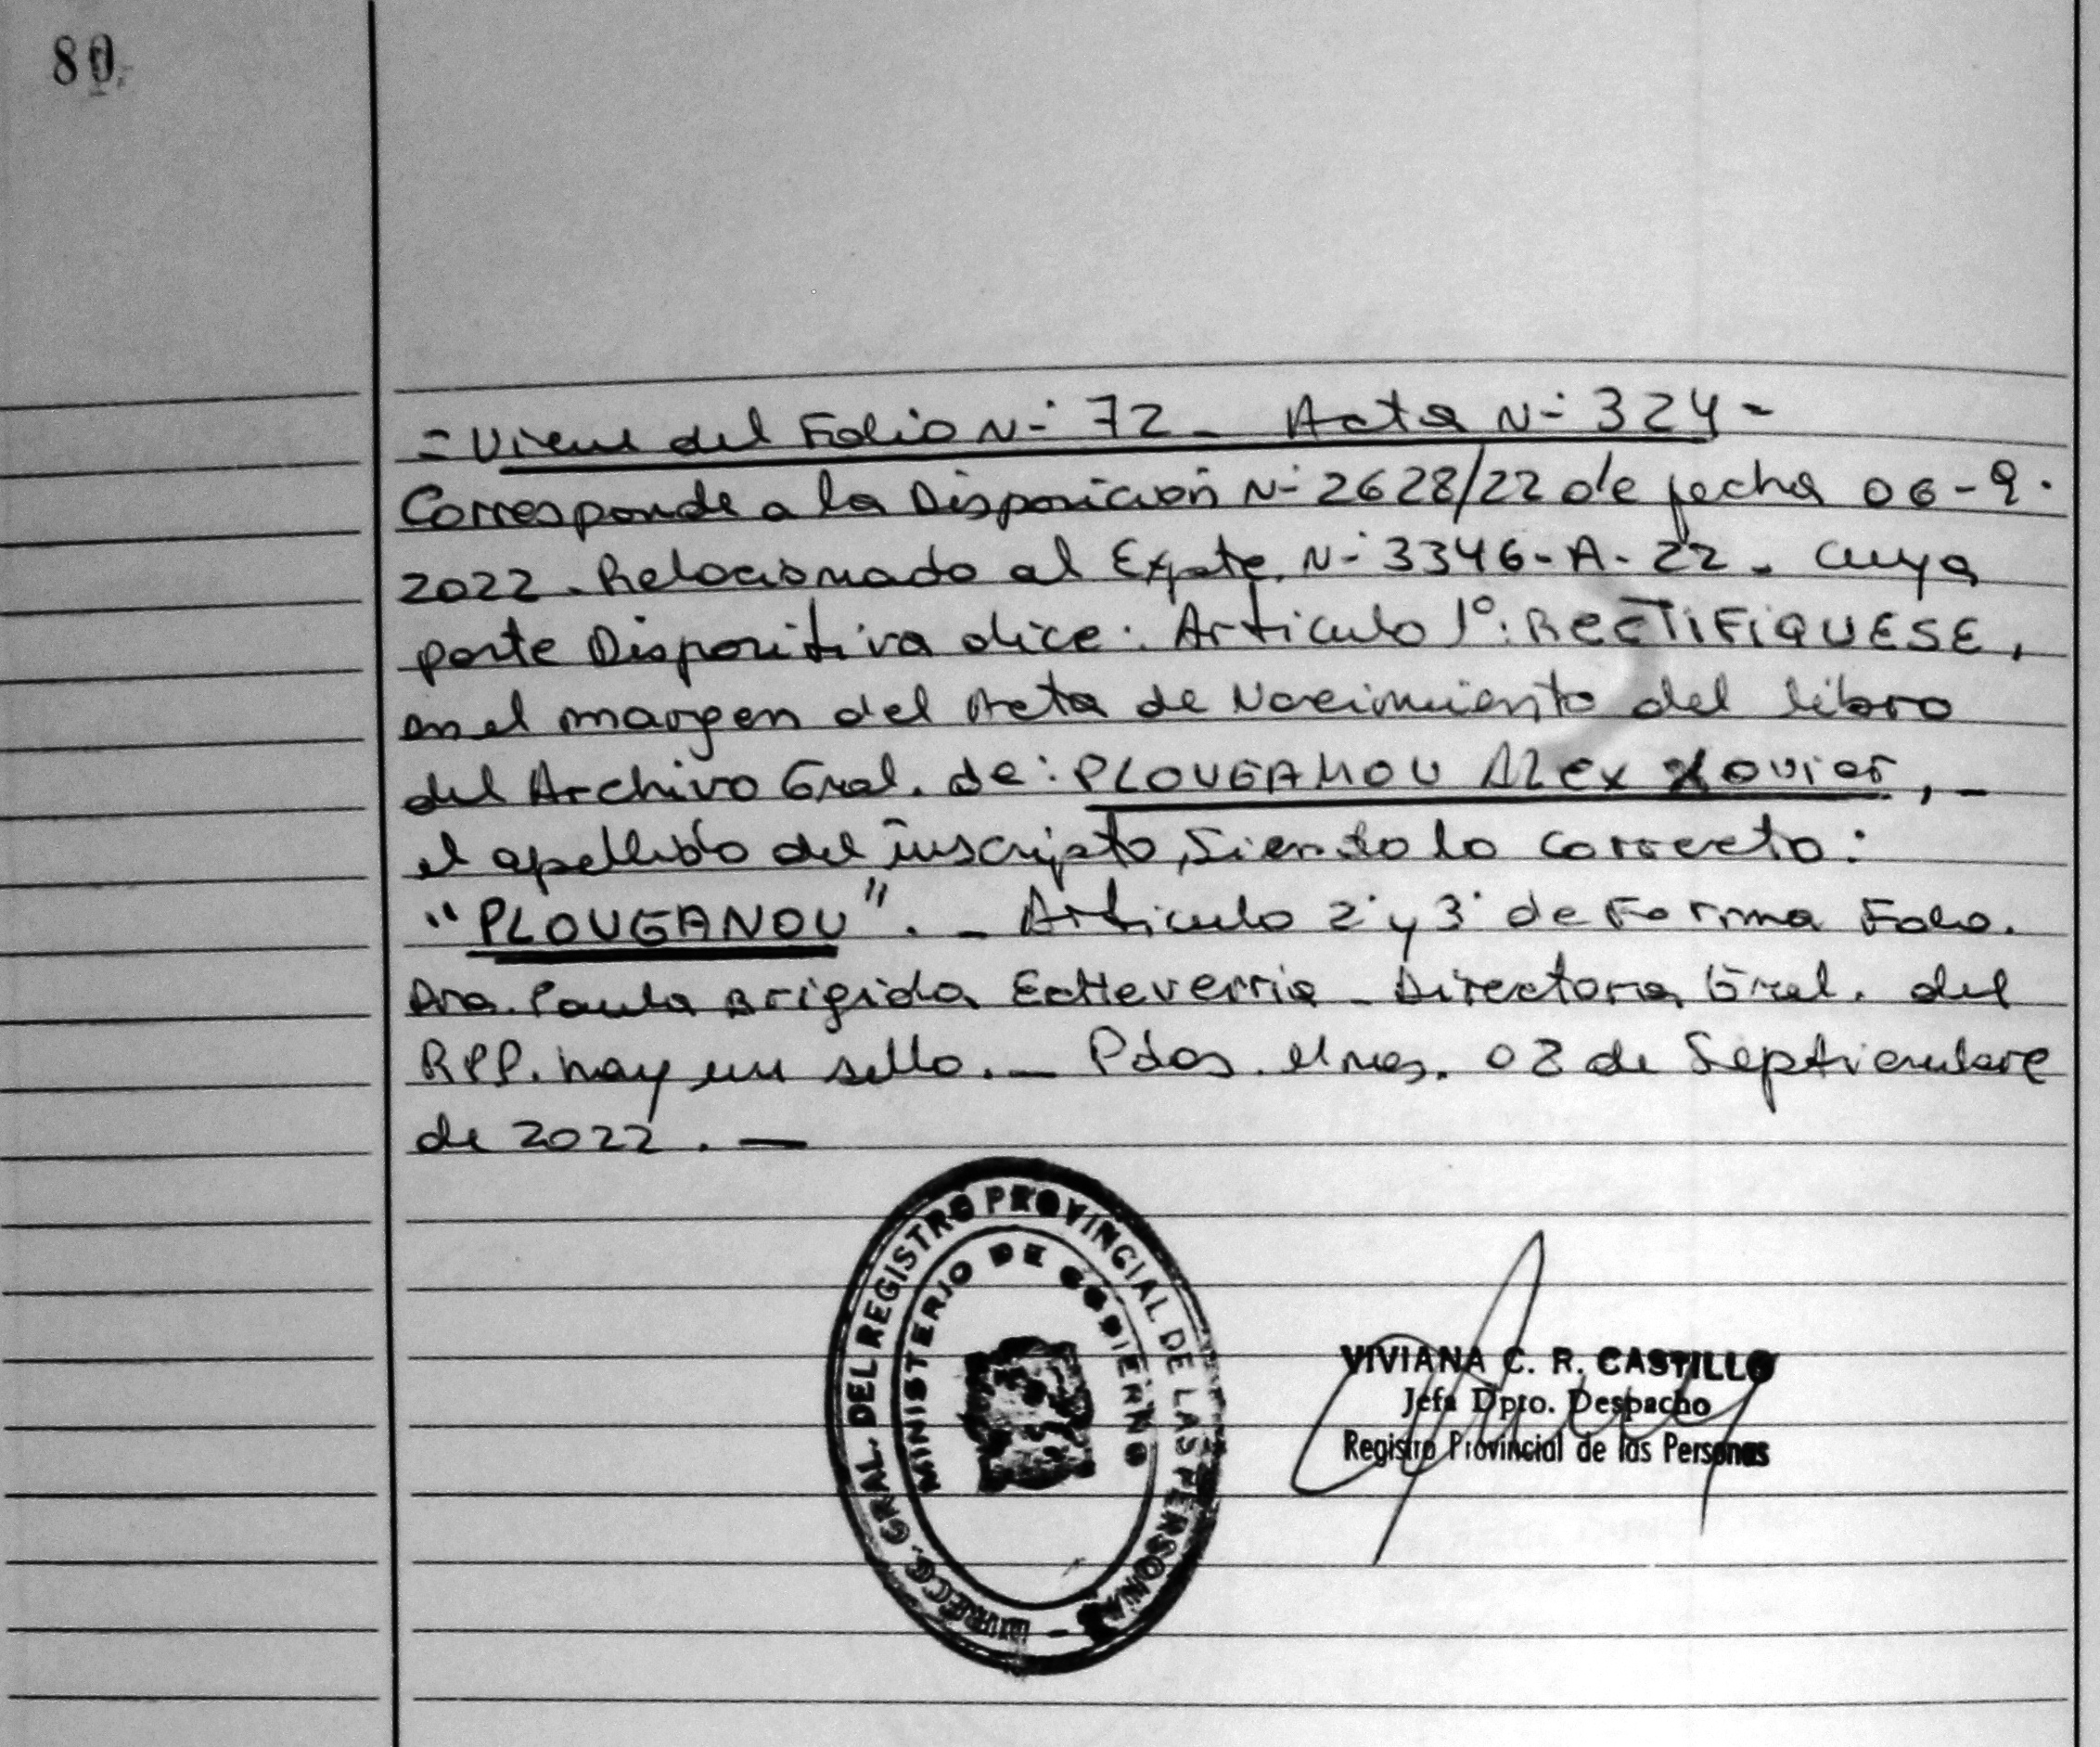 80
= Viene del Folio N- 72 - Acta N- 324 -
Corresponde a la Disposición N- 2628/22 de fecha 06-9.
2022. Relacionado al Expte. N- 3346-A-22. cuya
parte Dispositiva dice: Artículo 1º: RECTIFIQUESE,
en el margen del Acta de Nacimiento del libro
del Archivo Gral. de: PLOUGAMOU Alex Xavier, -
el apellido del inscripto, siendo lo correcto:
"PLOUGANOU". - Artículo 2º y 3º de Forma Fdo.
Dra. Paula Brigida Echeverria - Directora Gral. del
RPP. hay un sello. - Pdas. 08 de Septiembre
de 2022. —
DIRECC. GRAL. DEL REGISTRO PROVINCIAL DE LAS PERSONAS -
MINISTERIO DE GOBIERNO
VIVIANA C. R. CASTILLO
Jefa Dpto. Despacho
Registro Provincial de las Personas